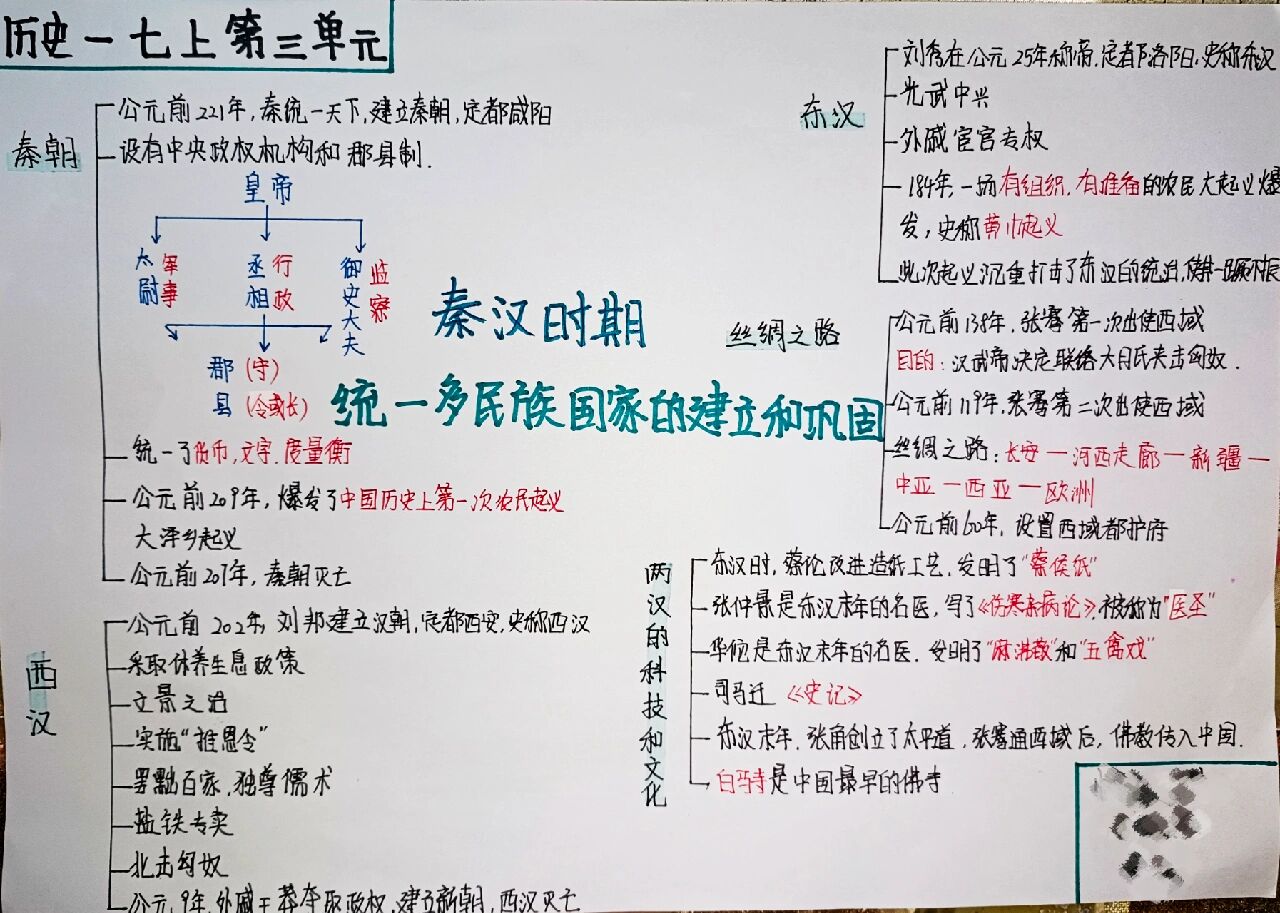 历史一七上第三单元
秦朝
公元前221年,秦统一天下,建立秦朝,定都咸阳
设有中央政权机构和郡县制.
皇帝
太尉 军事
丞相 行政
御史大夫 监察
郡(守)
县(令或长)
统一了货币,文字.度量衡
公元前209年,爆发了中国历史上第一次农民起义
大泽乡起义
公元前207年,秦朝灭亡
西汉
公元前202年,刘邦建立汉朝,定都西安,史称西汉
采取休养生息政策
文景之治
实施“推恩令”
罢黜百家,独尊儒术
盐铁专卖
北击匈奴
公元9年,外戚王莽夺取政权,建立新朝,西汉灭亡
秦汉时期
统一多民族国家的建立和巩固
东汉
刘秀在公元25年称帝.定都洛阳,史称东汉
光武中兴
外戚宦官专权
184年,一场有组织,有准备的农民大起义爆
发,史称黄巾起义
此次起义沉重打击了东汉的统治,使其一蹶不振
丝绸之路
公元前138年,张骞第一次出使西域
目的:汉武帝决定联络大月氏夹击匈奴.
公元前119年,张骞第二次出使西域
丝绸之路:长安一河西走廊一新疆一
中亚一西亚一欧洲
公元前60年,设置西域都护府
两汉的科技和文化
东汉时,蔡伦改进造纸工艺,发明了“蔡侯纸”
张仲景是东汉末年的名医,写了《伤寒杂病论》,被称为“医圣”
华佗是东汉末年的名医.发明了“麻沸散”和“五禽戏”
司马迁《史记》
东汉末年.张角创立了太平道,张骞通西域后,佛教传入中国.
白马寺是中国最早的佛寺